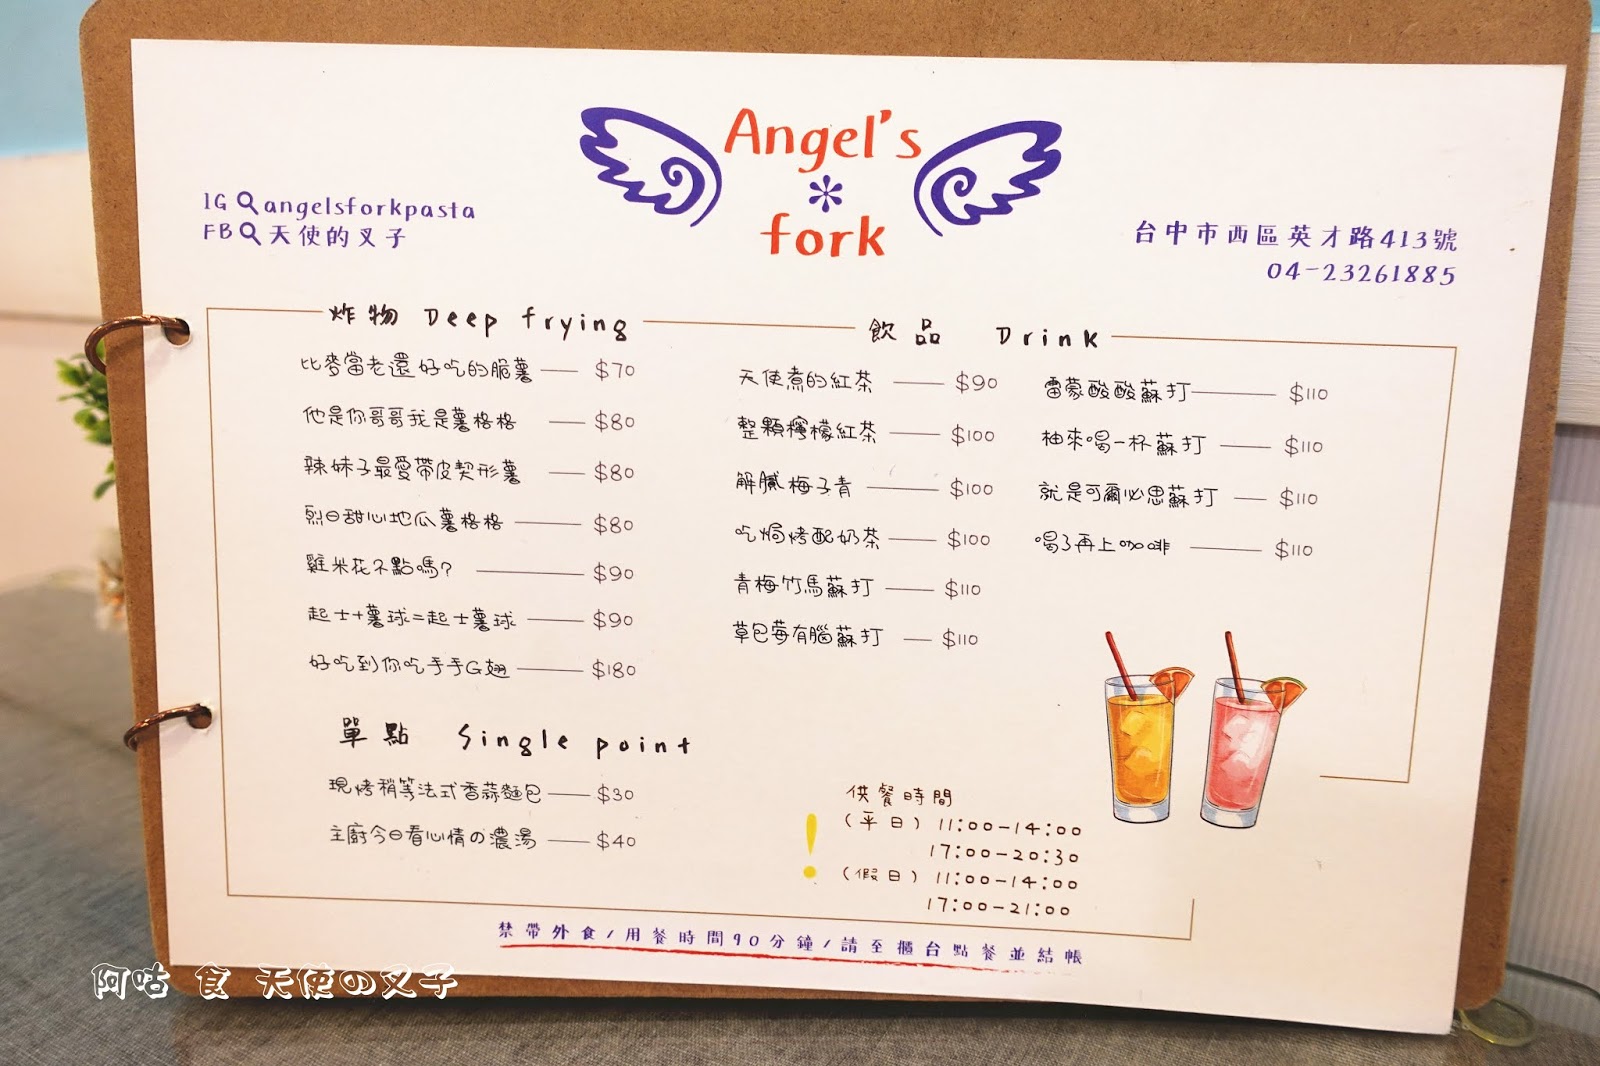 Angel's
*
fork
IG angelsforkpasta
FB 天使的叉子
台中市西區英才路413號
04-23261885
炸物 Deep frying
比麥當老還好吃的脆薯 $70
他是你哥哥我是薯格格 $80
辣妹子最愛帶皮契形薯 $80
烈日甜心地瓜薯格格 $80
雞米花不點嗎? $90
起士+薯球=起士薯球 $90
好吃到你吃手手G翅 $180
單點 Single point
現烤稍等法式香蒜麵包 $30
主廚今日看心情の濃湯 $40
飲品 Drink
天使煮的紅茶 $90
整顆檸檬紅茶 $100
解膩梅子青 $100
吃焗烤配奶茶 $100
青梅竹馬蘇打 $110
草包莓有腦蘇打 $110
雷蒙酸酸蘇打 $110
柚來喝一杯蘇打 $110
就是可爾必思蘇打 $110
喝了再上咖啡 $110
供餐時間
(平日) 11:00-14:00
17:00-20:30
(假日) 11:00-14:00
17:00-21:00
禁帶外食/用餐時間90分鐘/請至櫃台點餐並結帳
阿咕 食 天使の叉子